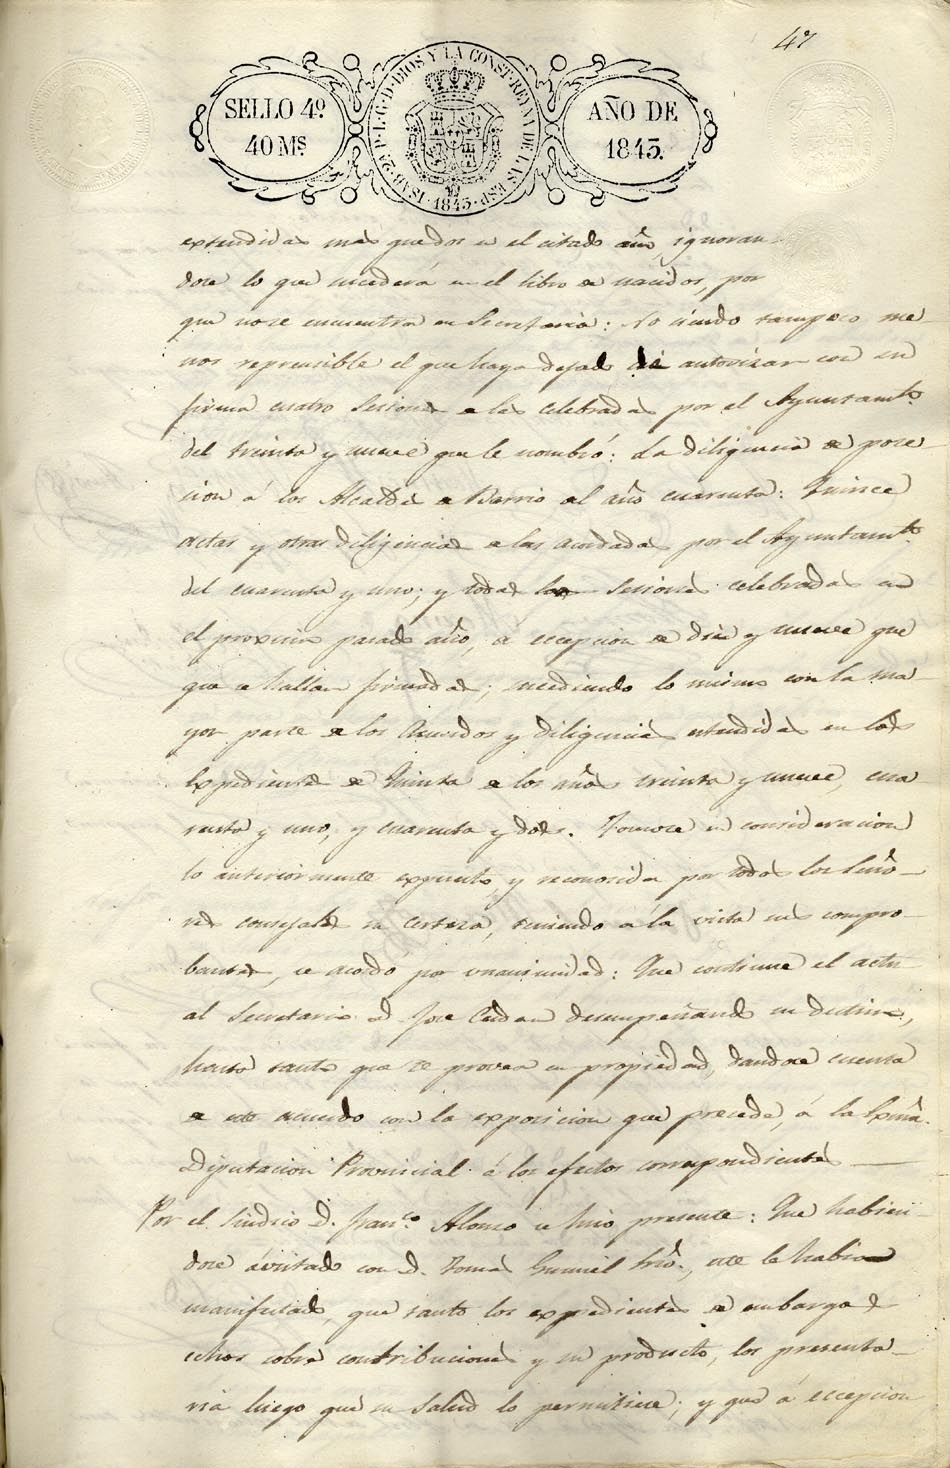 47
SELLO 4º
40 Ms.
ISAB. 2ª P. L. G. D. DIOS Y LA CONST. REYNA DE LAS ESP. 1843.
AÑO DE
1843.
extendidas mas que dos en el citado año, ignoran-
dose lo que sucederá en el libro de nacidos, por
que no se encuentra en Secretaria: No siendo tampoco me-
nos reprensible el que haya dejado de autorizar con su
firma cuatro Sesiones de las celebradas por el Ayuntamto.
del treinta y nueve que le nombró: La diligencia de pose-
sion á los Alcaldes de Barrio del año cuarenta: Quince
actas y otras diligencias de las acordadas por el Ayuntamto.
del cuarenta y uno; y todas las Sesiones celebradas en
el proximo pasado año, á escepcion de diez y nueve que
que se hallan firmadas; sucediendo lo mismo con la ma-
yor parte de los Acuerdos y diligencias estendidas en los
Expedientes de Quinta de los años treinta y nueve, cua-
renta y uno, y cuarenta y dos. Tomose en consideracion
lo anteriormente expuesto, y reconocida por todos los Seño-
res consejales su certeza, teniendo á la vista sus compro-
bantes, se acordó por unanimidad: Que continue el actu-
al Secretario D. Jose desempeñando su destino,
hasta tanto que se provea en propiedad, dandose cuenta
de este acuerdo con la exposicion que precede, á la Exma.
Diputacion Provincial á los efectos correspondientes
Por el Sindico D. Franco. Alonso se hizo presente: Que habien-
dose avistado con D. Tomas Gumiel este le habia
manifestado, que tanto los expedientes de embargo é-
chos sobre contribuciones y su producto, los presenta-
ria luego que su salud lo permitiese; y que á escepcion